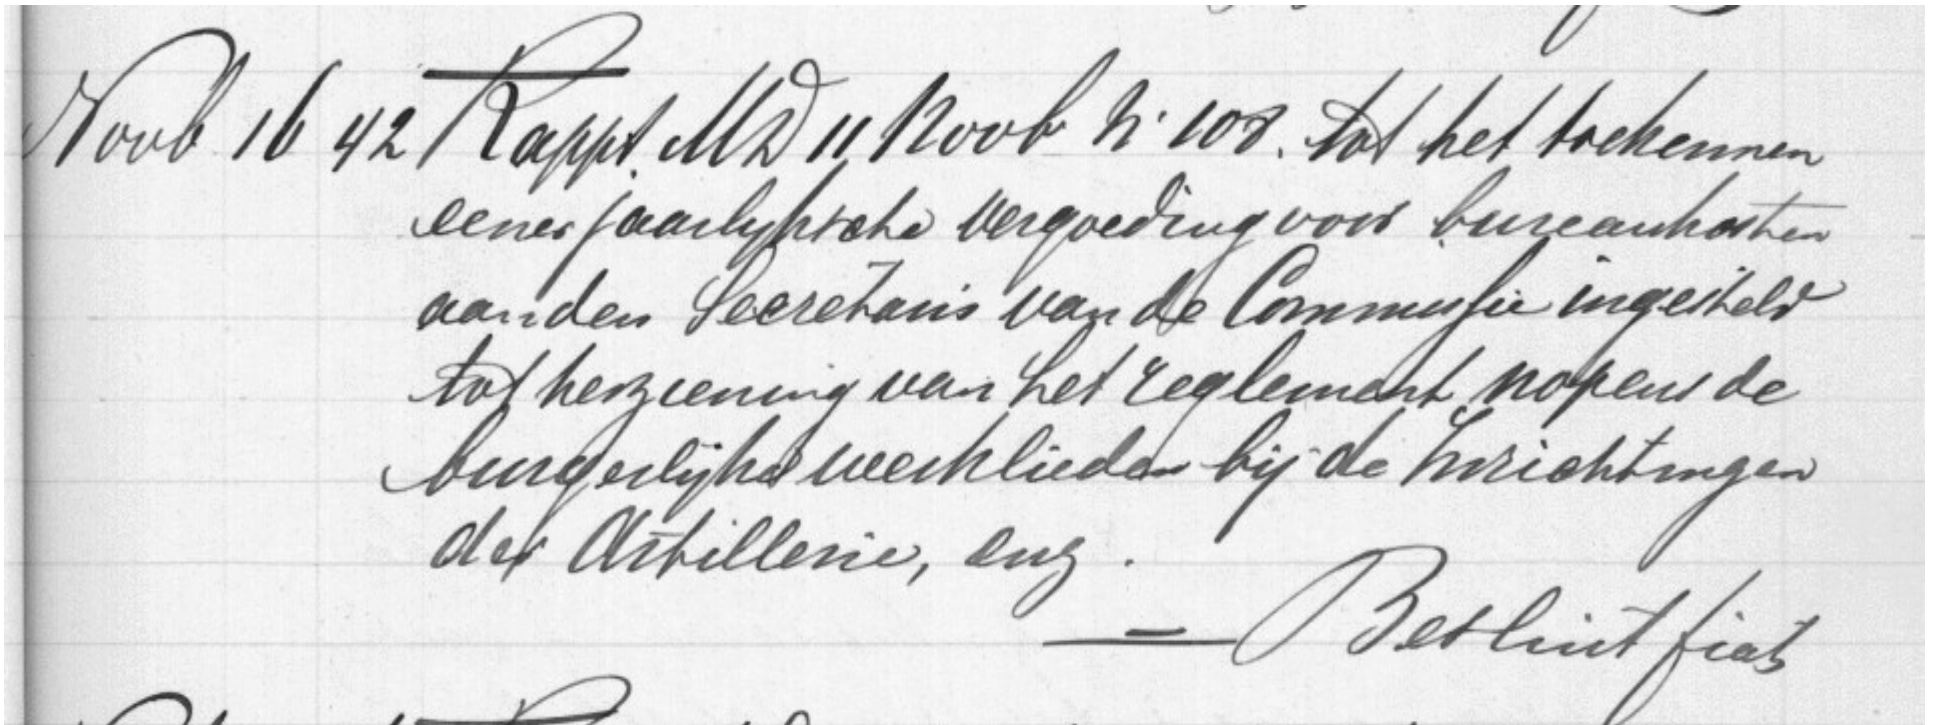 Novb 16 42 Rappt. MD 11 Novb N. 108. tot het toekennen
eener jaarlyksche vergoeding voor bureaukosten
aan den Secretaris van de Commissie ingesteld
tot herziening van het reglement nopens de
burgerlijke werklieden bij de Inrichtingen
der Artillerie, enz.
= Besluit fiat